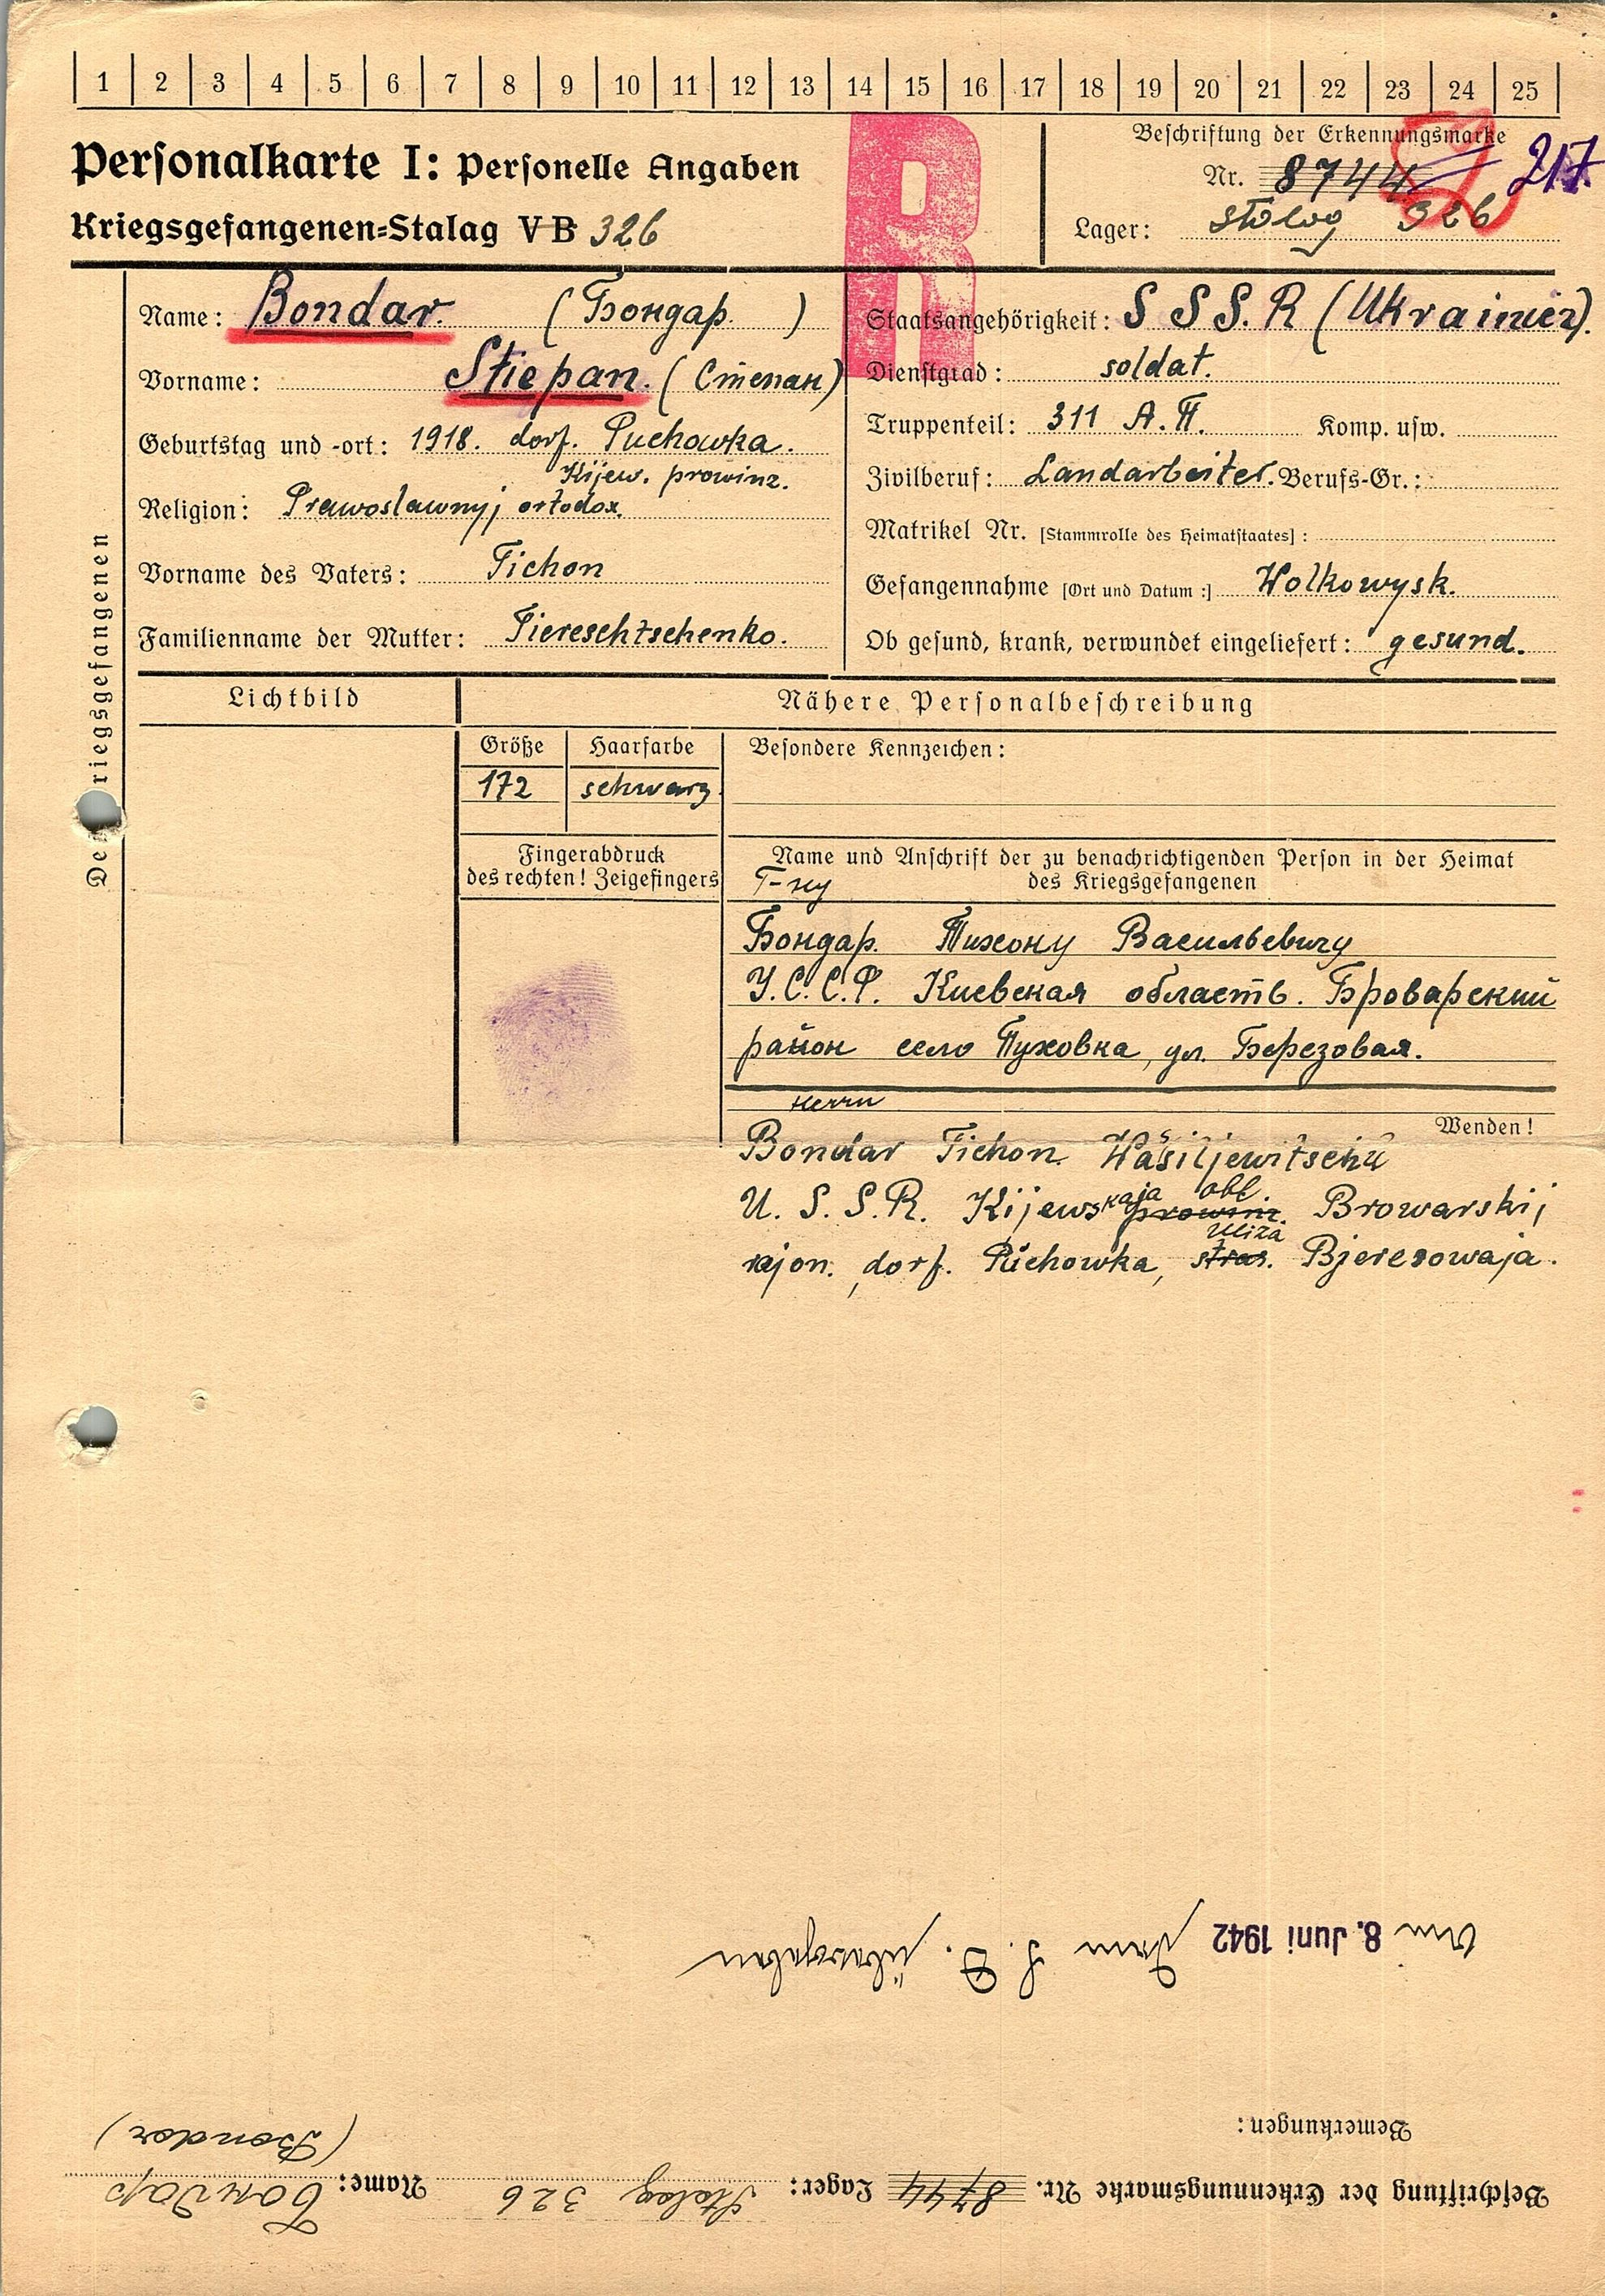 1 2 3 4 5 6 7 8 9 10 11 12 13 14 15 16 17 18 19 20 21 22 23 24 25
Personalkarte I: Personelle Angaben
Kriegsgefangenen-Stalag VB 326
R
Beschriftung der Erkennungsmarke
Nr. 8744 217
Lager: Stalag 326
Des Kriegsgefangenen
Name: Bondar. (Бондар.)
Vorname: Stiepan. (Степан)
Geburtstag und -ort: 1918. dorf. Puchowka.
Kijew. prowinz.
Religion: Prawoslawnyj ortodox.
Vorname des Vaters: Tichon
Familienname der Mutter: Tiereschtschenko.
Staatsangehörigkeit: S S S. R (Ukrainier).
Dienstgrad: soldat.
Truppenteil: 311 А.П. Komp. usw.
Zivilberuf: Landarbeiter. Berufs-Gr.:
Matrikel Nr. [Stammrolle des Heimatstaates]:
Gefangennahme [Ort und Datum:] Wolkowysk.
Ob gesund, krank, verwundet eingeliefert: gesund.
Lichtbild
Nähere Personalbeschreibung
Größe Haarfarbe Besondere Kennzeichen:
172 schwarz.
Fingerabdruck
des rechten! Zeigefingers
Name und Anschrift der zu benachrichtigenden Person in der Heimat
des Kriegsgefangenen
Г-ну
Бондар. Тихону Васильевичу
У.С.С.Р. Киевская область. Броварский
район село Пуховка, ул. Березовая.
Herrn
Wenden!
Bondar Tichon Wasiljewitschu
U. S. S. R. Kijewskaja prowinz. obl. Browarskij
rajon. dorf. Puchowka, stras. Uliza Bjeresowaja.
Am 8. Juni 1942 dem S. D. übergeben
Bemerkungen:
Beschriftung der Erkennungsmarke Nr. 8744 Lager: Stalag 326 Name: Бондар
(Bondar)